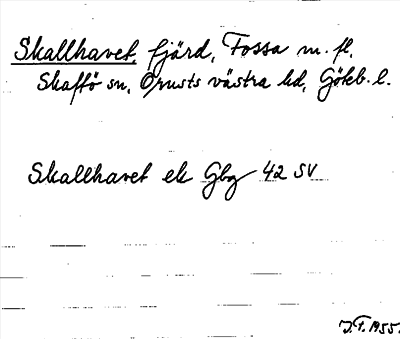 Skallhavet, fjärd, Fossa m. fl.
Skaftö sn, Orusts västra hd, Göteb. l.
Skallhavet ek Gbg 42 SV
J.F. 1955.